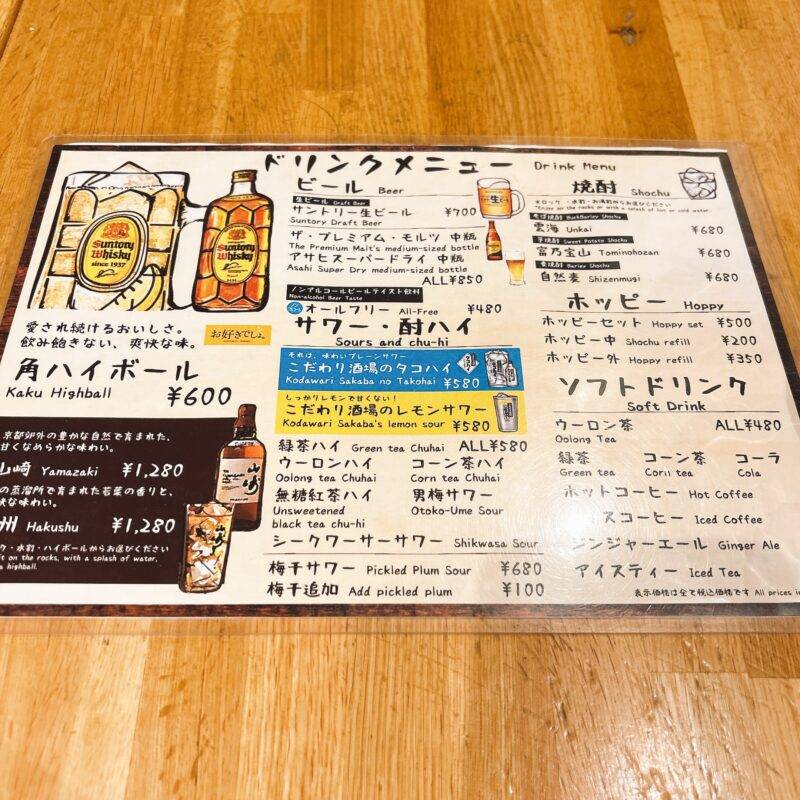 ドリンクメニュー Drink Menu
Suntory
Whisky
since 1937
Suntory
Whisky
愛され続けるおいしさ。
飲み飽きない、爽快な味。
お好きでしょ。
角ハイボール
Kaku Highball ¥600
京都郊外の豊かな自然で育まれた、
甘くなめらかな味わい。
山崎 Yamazaki ¥1,280
の蒸溜所で育まれた若葉の香りと、
快な味わい。
州 Hakushu ¥1,280
ク・水割・ハイボールからお選びください
on the rocks, with a splash of water,
a highball.
山崎
ビール Beer
生ビール Draft Beer
サントリー生ビール ¥700
Suntory Draft Beer
ザ・プレミアム・モルツ 中瓶
The Premium Malt's medium-sized bottle
アサヒスーパードライ 中瓶
Asahi Super Dry medium-sized bottle
ALL¥850
ノンアルコールビールテイスト飲料
Non-alcohol Beer Taste
オールフリー All-Free ¥480
サワー・酎ハイ
Sours and chu-hi
それは、味わいプレーンサワー
こだわり酒場のタコハイ
Kodawari Sakaba no Takohai ¥580
しっかりレモンで甘くない!
こだわり酒場のレモンサワー
Kodawari Sakaba's lemon sour ¥580
緑茶ハイ Green tea Chuhai ALL¥580
ウーロンハイ コーン茶ハイ
Oolong tea Chuhai Corn tea Chuhai
無糖紅茶ハイ 男梅サワー
Unsweetened Otoko-Ume Sour
black tea chu-hi
シークワーサーサワー Shikwasa Sour
梅干サワー Pickled Plum Sour ¥680
梅干追加 Add pickled plum ¥100
焼酎 Shochu
※ロック・水割・お湯割からお選びください
*Enjoy on the rocks or with a splash of hot or cold water.
そば焼酎 BuckBarley Shochu
雲海 Unkai ¥680
芋焼酎 Sweet Potato Shochu
富乃宝山 Tominohozan ¥680
麦焼酎 Barley Shochu
自然麦 Shizenmugi ¥680
ホッピー Hoppy
ホッピーセット Hoppy set ¥500
ホッピー中 Shochu refill ¥200
ホッピー外 Hoppy refill ¥350
ソフトドリンク
Soft Drink
ウーロン茶 ALL¥480
Oolong Tea
緑茶 コーン茶 コーラ
Green tea Corn tea Cola
ホットコーヒー Hot Coffee
スコーヒー Iced Coffee
ジンジャーエール Ginger Ale
アイスティー Iced Tea
表示価格は全て税込価格です All prices in